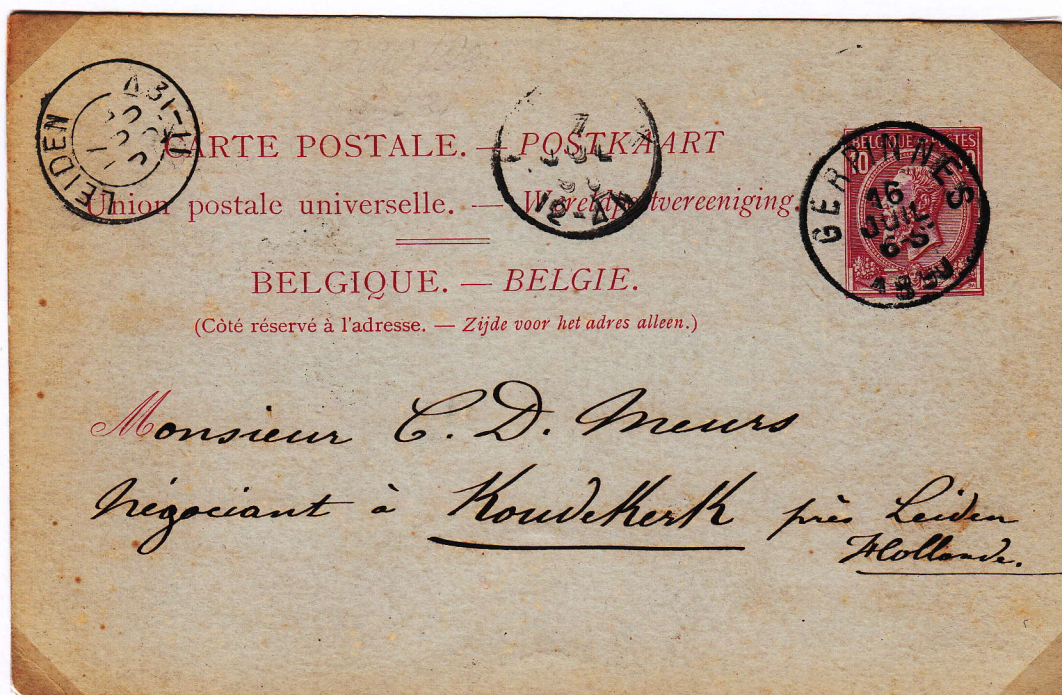 LEIDEN
CARTE POSTALE. — POSTKAART
Union postale universelle. — Wereldpostvereeniging.
BELGIQUE. — BELGIE.
(Côté réservé à l'adresse. — Zijde voor het adres alleen.)
7
JUL
12-4N
BELGIQUE POSTES
10
GERPINNES
16
JUIL
6-S
Monsieur C. D. Meurs
Négociant à Koudekerk près Leiden
Hollande.